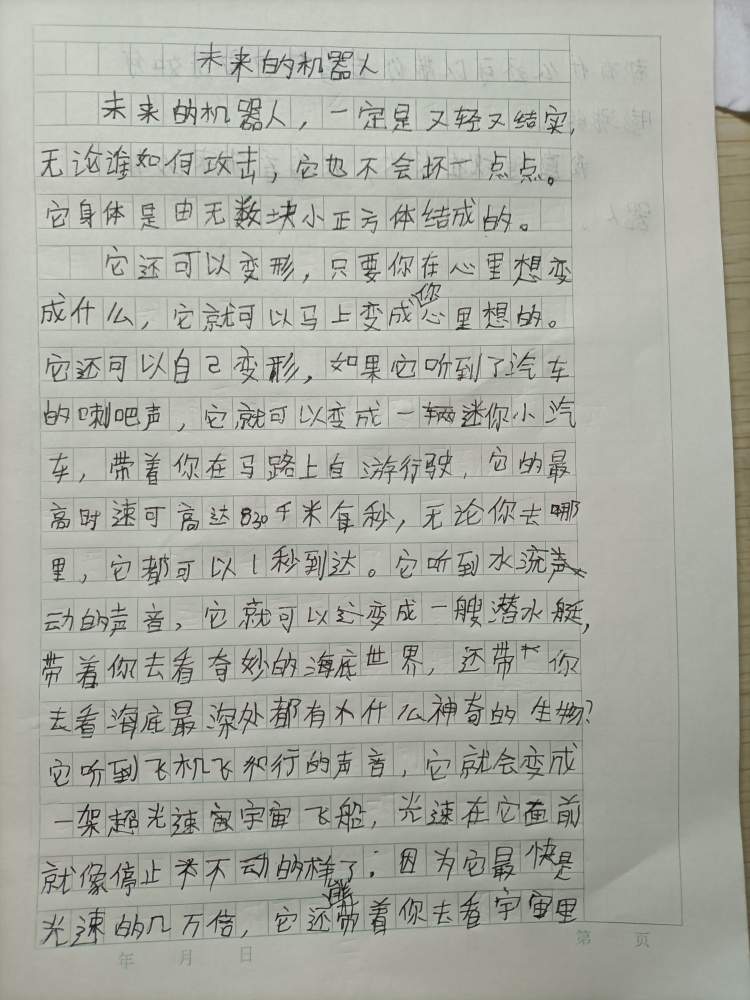 未来的机器人
未来的机器人，一定是又轻又结实，
无论谁如何攻击，它也不会坏一点点。
它身体是由无数块小正方体结成的。
它还可以变形，只要你在心里想变
成什么，它就可以马上变成你心里想的。
它还可以自己变形，如果它听到了汽车
的喇叭声，它就可以变成一辆迷你小汽
车，带着你在马路上自游行驶，它的最
高时速可高达830千米每秒，无论你去哪
里，它都可以1秒到达。它听到水流
动的声音，它就可以变成一艘潜水艇，
带着你去看奇妙的海底世界，还带你
去看海底最深处都有什么神奇的生物？
它听到飞机飞行的声音，它就会变成
一架超光速宇宙飞船，光速在它面前
就像停止不动的样了，因为它最快是
光速的几万倍，它还能带着你去看宇宙里
年 月 日
第 页